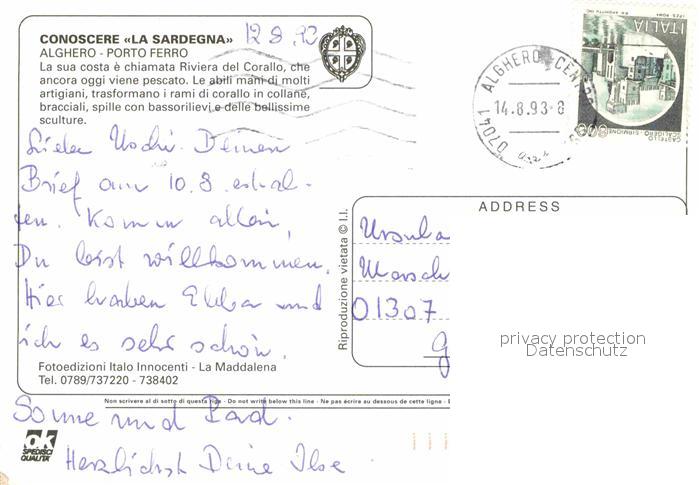 CONOSCERE «LA SARDEGNA»
12 8 93
ALGHERO - PORTO FERRO
La sua costa è chiamata Riviera del Corallo, che
ancora oggi viene pescato. Le abili mani di molti
artigiani, trasformano i rami di corallo in collane,
bracciali, spille con bassorilievi e delle bellissime
sculture.
ITALIA
CASTELLO
SCALIGERO-SIRMIONE
800
07041 ALGHERO CENTRO
14.8.93-8
Liebe Uschi. Deinen
Brief am 10.8. erhal-
ten. Komm allein,
Du bist willkommen.
Hier haben Ekka und
ich es sehr schön.
Sonne und Rad.
Herzlichst Deine Ilse
Riproduzione vietata © I.I.
ADDRESS
Ursula
Morsch
01307
G
privacy protection
Datenschutz
Fotoedizioni Italo Innocenti - La Maddalena
Tel. 0789/737220 - 738402
Non scrivere al di sotto di questa riga - Do not write below this line - Ne pas écrire au dessous de cette ligne -
ok
SPEDISCI
QUALITA'